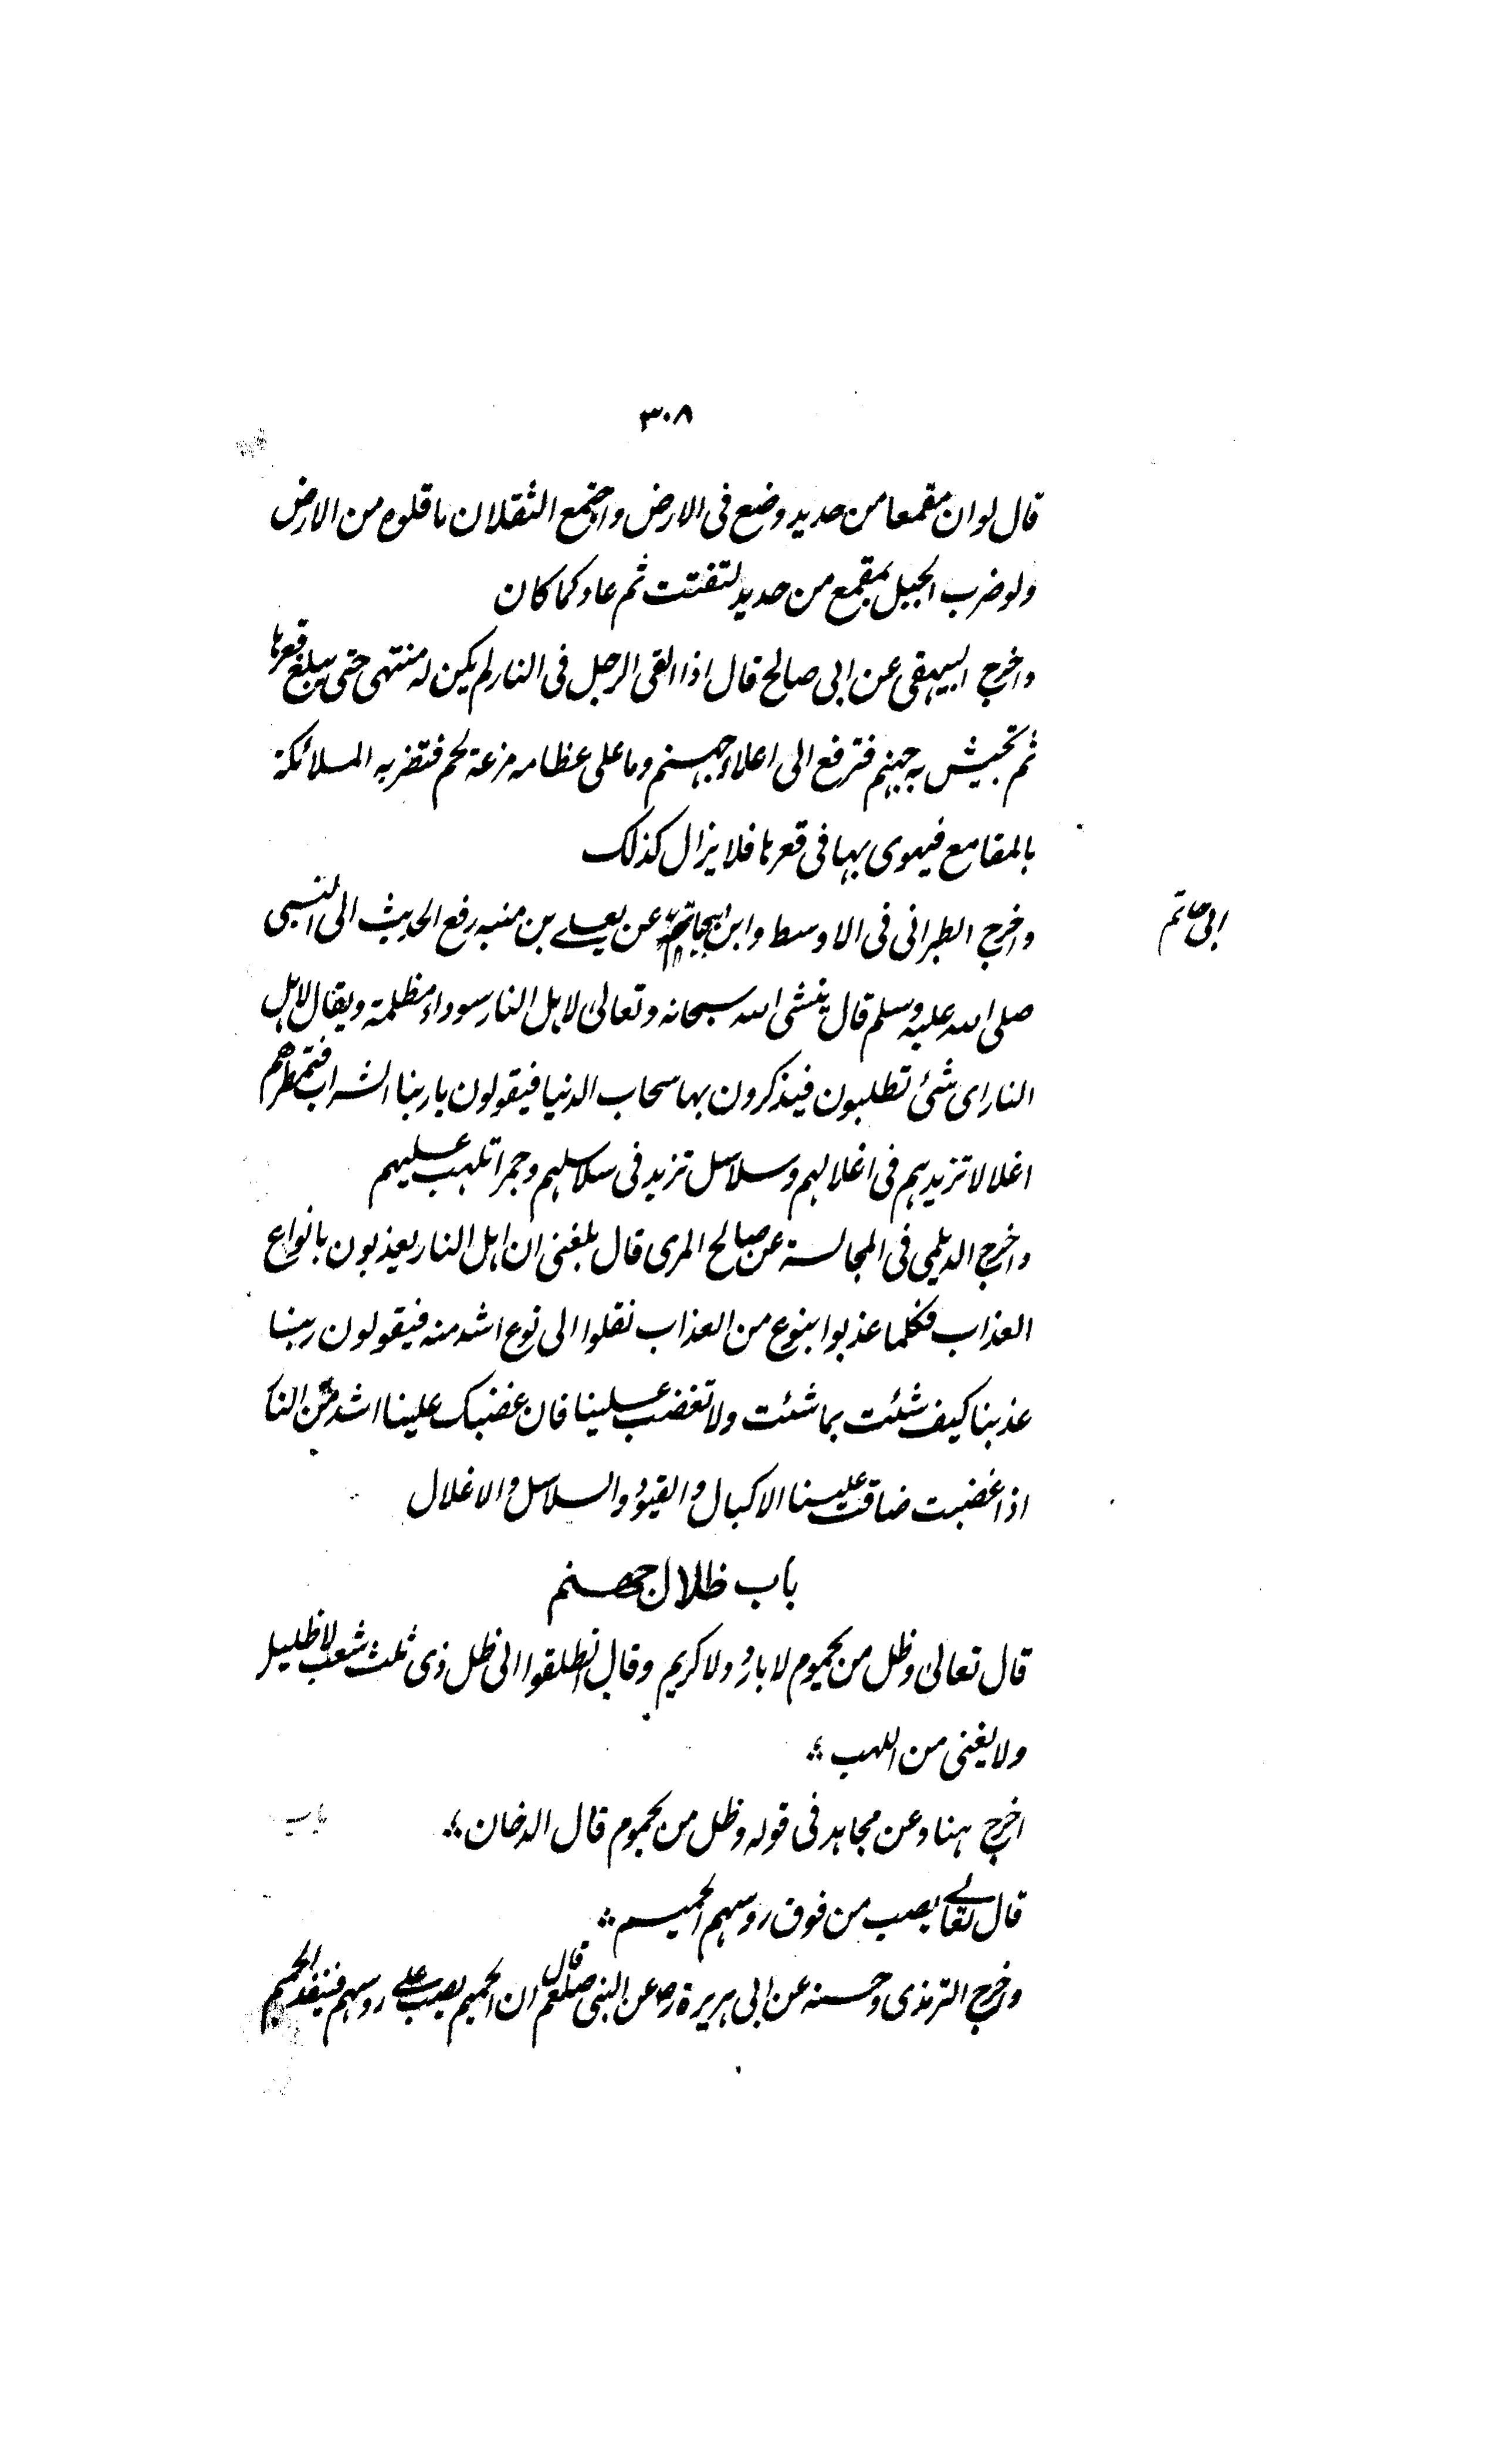 ٣٠٨
قال لو ان مقمعا من حديد وضع فى الارض واجتمع الثقلان ما قلوه من الارض
ولو ضرب الجبل بمقمع من حديد لتفتت ثم عاد كما كان
واخرج البيهقى عن ابى صالح قال اذا القى الرجل فى النار لم يكن له منتهى حتى يبلغ قعرها
ثم تجيش به جهنم فترفع الى اعلاء جهنم وما على عظامه مزعة لحم فتضربه الملائكة
بالمقامع فيهوى بها فى قعرها فلا يزال كذلك
واخرج الطبرانى فى الاوسط وابن ابيحاتم عن يعلے بن منبه رفع الحديث الى النبى
ابى حاتم
صلى الله عليه وسلم قال ينشئ الله سبحانه وتعالىٰ لاهل النار سوداء مظلمة ويقال لاهل
النار اى شئ تطلبون فيذكرون بها سحاب الدنيا فيقولون يا ربنا الشراب فتمطرهم
اغلالا تزيدهم فى اغلالهم وسلاسل تزيد فى سلاسلهم وجمرا تلهب عليهم
واخرج الديلمى فى المجالسة عن صالح المرى قال بلغنى ان اهل النار يعذبون بانواع
العذاب فكلما عذبوا بنوع من العذاب نقلوا الى نوع اشد منه فيقولون ربنا
عذبنا كيف شئت بما شئت ولا تغضب علينا فان غضبك علينا اشد من النا
اذا غضبت ضاقت علينا الاكبال والقيود والسلاسل والاغلال
باب ظلال جهنم
قال تعالىٰ وظل من يحموم لا بارد ولا كريم وقال انطلقوا الى ظل ذى ثلث شعب لا ظليل
ولا يغنى من اللهب
اخرج هناد عن مجاهد فى قوله وظل من يحموم قال الدخان
قال تعالےٰ يصب من فوق روسهم الحميم
واخرج الترمذى وحسنه عن ابى هريرة رض عن النبى صلعم قال ان الحميم يصب علے روسهم فينفذ الحميم